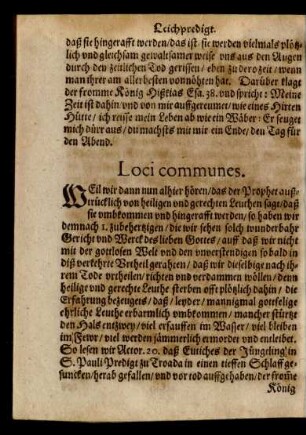 Leichpredigt.
daß sie hingerafft werden/das ist/ sie werden vielmals plötz-
lich vnd gleichsam gewaltsamer weise vns aus den Augen
durch den zeitlichen Tod gerissen / eben zu der zeit / wenn
man ihrer am allerbesten vonnöhten hat. Darüber klage
der fromme König Hißkias Esa. 38. vnd spricht: Meine
Zeit ist dahin/ vnd von mir auffgereumet/ wie eines Hirten
Hütte/ ich reisse mein Leben ab wie ein Wäber: Er seuget
mich dürr aus/ du machsts mit mir ein Ende/ den Tag für
den Abend.
Loci communes.
WEil wir dann nun alhier hören/das der Prophet auß-
trücklich von heiligen vnd gerechten Leuthen sage/daß
sie vmbkommen vnd hingerafft werden/ so haben wir
demnach 1. zubehertzigen / die wir sehen solch wunderbahr
Gericht vnd Werck des lieben Gottes/ auff daß wir nicht
mit der gottlosen Welt vnd den vnverstendigen sobald in
diß verkehrte Vrtheil gerahten/ daß wir dieselbige nach ih-
rem Tode vrtheilen/ richten vnd verdammen wöllen/ denn
heilige vnd gerechte Leuthe sterben offt plötzlich dahin / die
Erfahrung bezeugets/ daß/ leyder/ mannigmal gottfelige
ehrliche Leuthe erbarmlich vmbkommen / mancher stürtzt
den Hals entzwey/ viel ersauffen im Wasser/ viel bleiben
im Fewr/ viel werden jämmerlich ermordet vnd entleibet.
So lesen wir Actor. 20. daß Eutiches der Jüngeling/ in
S. Pauli Predigt zu Troada in einen tieffen Schlaff ge-
suncken/herab gefallen/ vnd vor tod auffgehaben/der from̃e
König